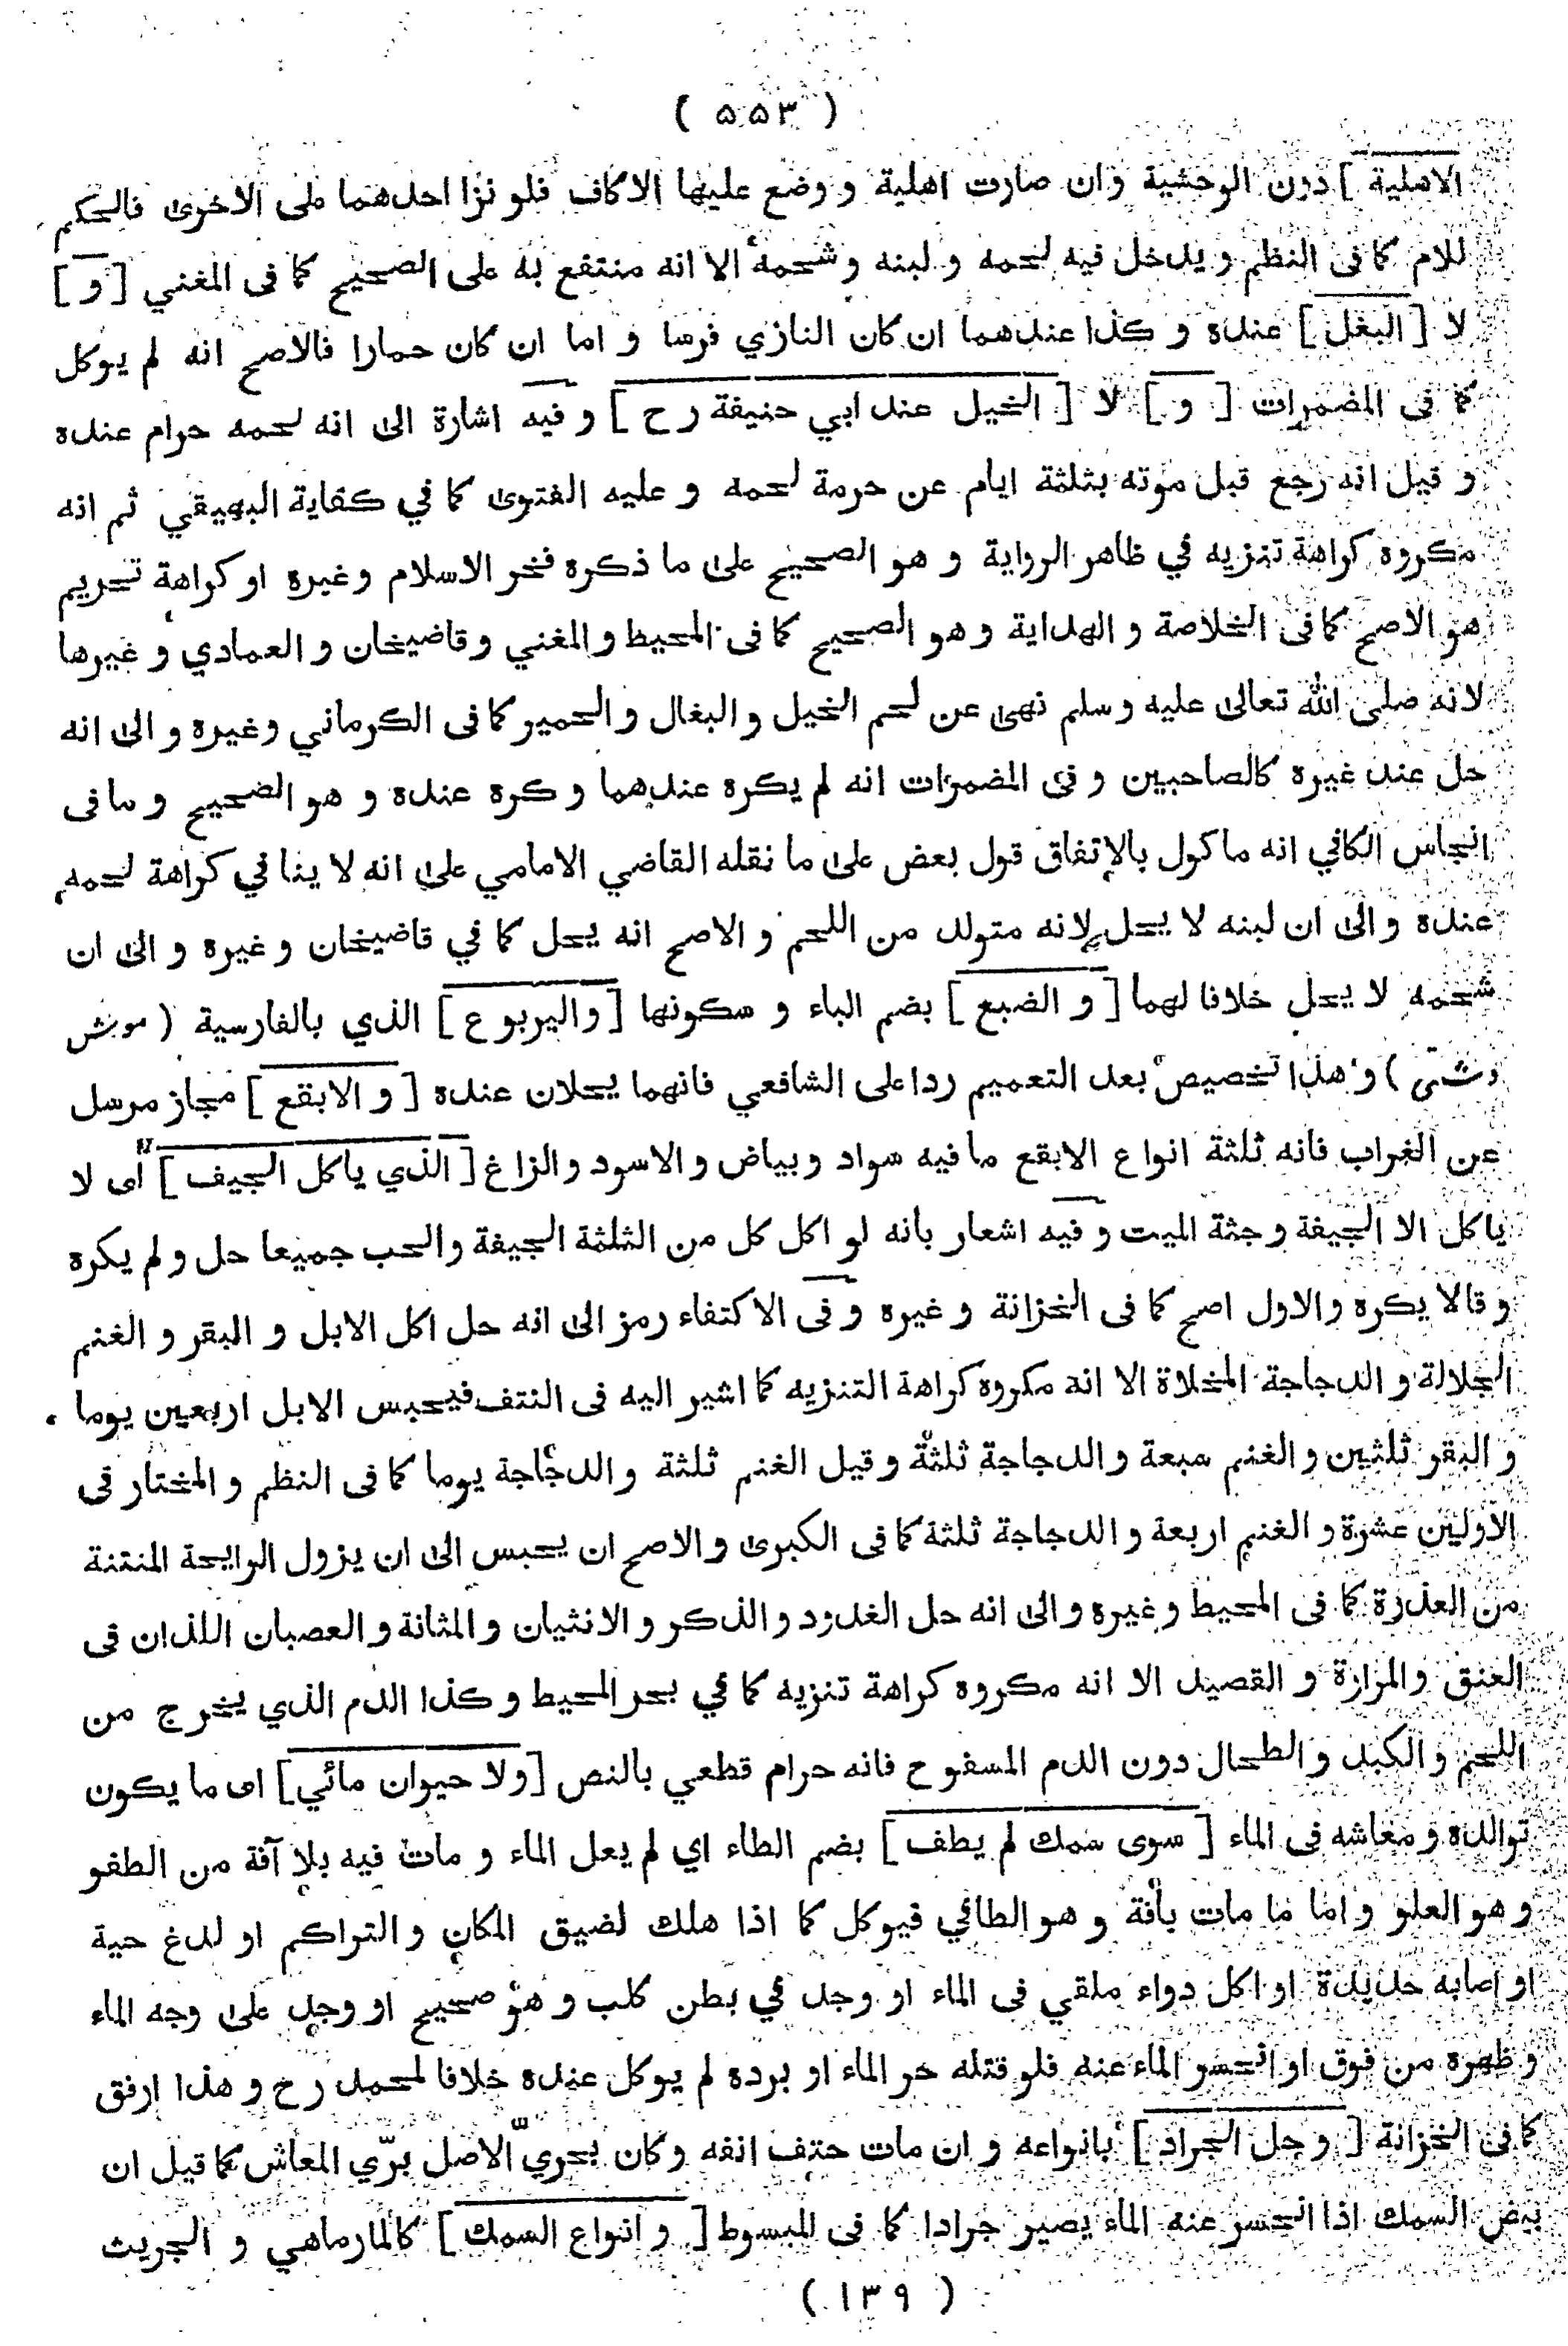 ( ۵۵۳ )
الاهلية ] دون الوحشية وان صارت اهلية و وضع عليها الاكاف فلو نزا احدهما على الاخرى فالحكم
للام كما فى النظم و يدخل فيه لحمه و لبنه و شحمه الا انه منتفع به على الصحيح كما فى المغني [ و ]
لا [ البغل ] عنده و كذا عندهما ان كان النازي فرسا و اما ان كان حمارا فالاصح انه لم يوكل
كما فى المضمرات [ و ] لا [ الخيل عند ابي حنيفة رح ] و فيه اشارة الى انه لحمه حرام عنده
و قيل انه رجع قبل موته بثلثة ايام عن حرمة لحمه و عليه الفتوى كما في كفاية البهيقي ثم انه
مكروه كراهة تنزيه في ظاهر الرواية و هو الصحيح على ما ذكره فخر الاسلام وغيره او كراهة تحريم
هو الاصح كما فى الخلاصة و الهداية و هو الصحيح كما فى المحيط و المغني و قاضيخان و العمادي و غيرها
لانه صلى الله تعالى عليه وسلم نهى عن لحم الخيل و البغال و الحمير كما فى الكرماني وغيره و الى انه
حل عند غيره كالصاحبين و فى المضمرات انه لم يكره عندهما و كره عنده و هو الصحيح و ما فى
انجاس الكافي انه ماكول بالاتفاق قول بعض على ما نقله القاضي الامامي على انه لا ينا في كراهة لحمه
عنده و الى ان لبنه لا يحل لانه متولد من اللحم و الاصح انه يحل كما في قاضيخان و غيره و الى ان
شحمه لا يحل خلافا لهما [ و الضبع ] بضم الباء و سكونها [ واليربوع ] الذي بالفارسية ( موش
دشتى ) و هذا تخصيص بعد التعميم ردا على الشافعي فانهما يحلان عنده [ و الابقع ] مجاز مرسل
عن الغراب فانه ثلثة انواع الابقع ما فيه سواد و بياض و الاسود و الزاغ [ الذي ياكل الجيف ] اى لا
ياكل الا الجيفة و جثة الميت و فيه اشعار بانه لو اكل كل من الثلثة الجيفة والحب جميعا حل و لم يكره
و قالا يكره والاول اصح كما فى الخزانة و غيره و فى الاكتفاء رمز الى انه حل اكل الابل و البقر و الغنم
الجلالة و الدجاجة المخلاة الا انه مكروه كراهة التنزيه كما اشير اليه فى النتف فيحبس الابل اربعين يوما
و البقر ثلثين و الغنم سبعة و الدجاجة ثلثة و قيل الغنم ثلثة و الدجاجة يوما كما فى النظم و المختار فى
الاوليين عشرة و الغنم اربعة و الدجاجة ثلثة كما فى الكبرى و الاصح ان يحبس الى ان يزول الرايحة المنتنة
من العذرة كما فى المحيط و غيره و الى انه حل الغدود و الذكر و الانثيان و المثانة و العصبان اللذان فى
العنق والمرارة و القصيد الا انه مكروه كراهة تنزيه كما في بحر المحيط و كذا الدم الذي يخرج من
اللحم و الكبد و الطحال دون الدم المسفوح فانه حرام قطعي بالنص [ ولا حيوان مائي ] اى ما يكون
توالده و معاشه فى الماء [ سوى سمك لم يطف ] بضم الطاء اي لم يعل الماء و مات فيه بلا آفة من الطفو
و هو العلو و اما ما مات بأفة و هو الطافي فيوكل كما اذا هلك لضيق المكان و التراكم او لدغ حية
او اصابه حديدة او اكل دواء ملقي فى الماء او وجد في بطن كلب و هو صحيح او وجد على وجه الماء
و ظهره من فوق او انحسر الماء عنه فلو قتله حر الماء او برده لم يوكل عنده خلافا لمحمد رح و هذا ارفق
كما فى الخزانة [ و حل الجراد ] بانواعه و ان مات حتف انفه و كان بحريّ الاصل برّي المعاش كما قيل ان
بيض السمك اذا انحسر عنه الماء يصير جرادا كما فى المبسوط [ و انواع السمك ] كالمارماهي و الجريث
( ١٣٩ )